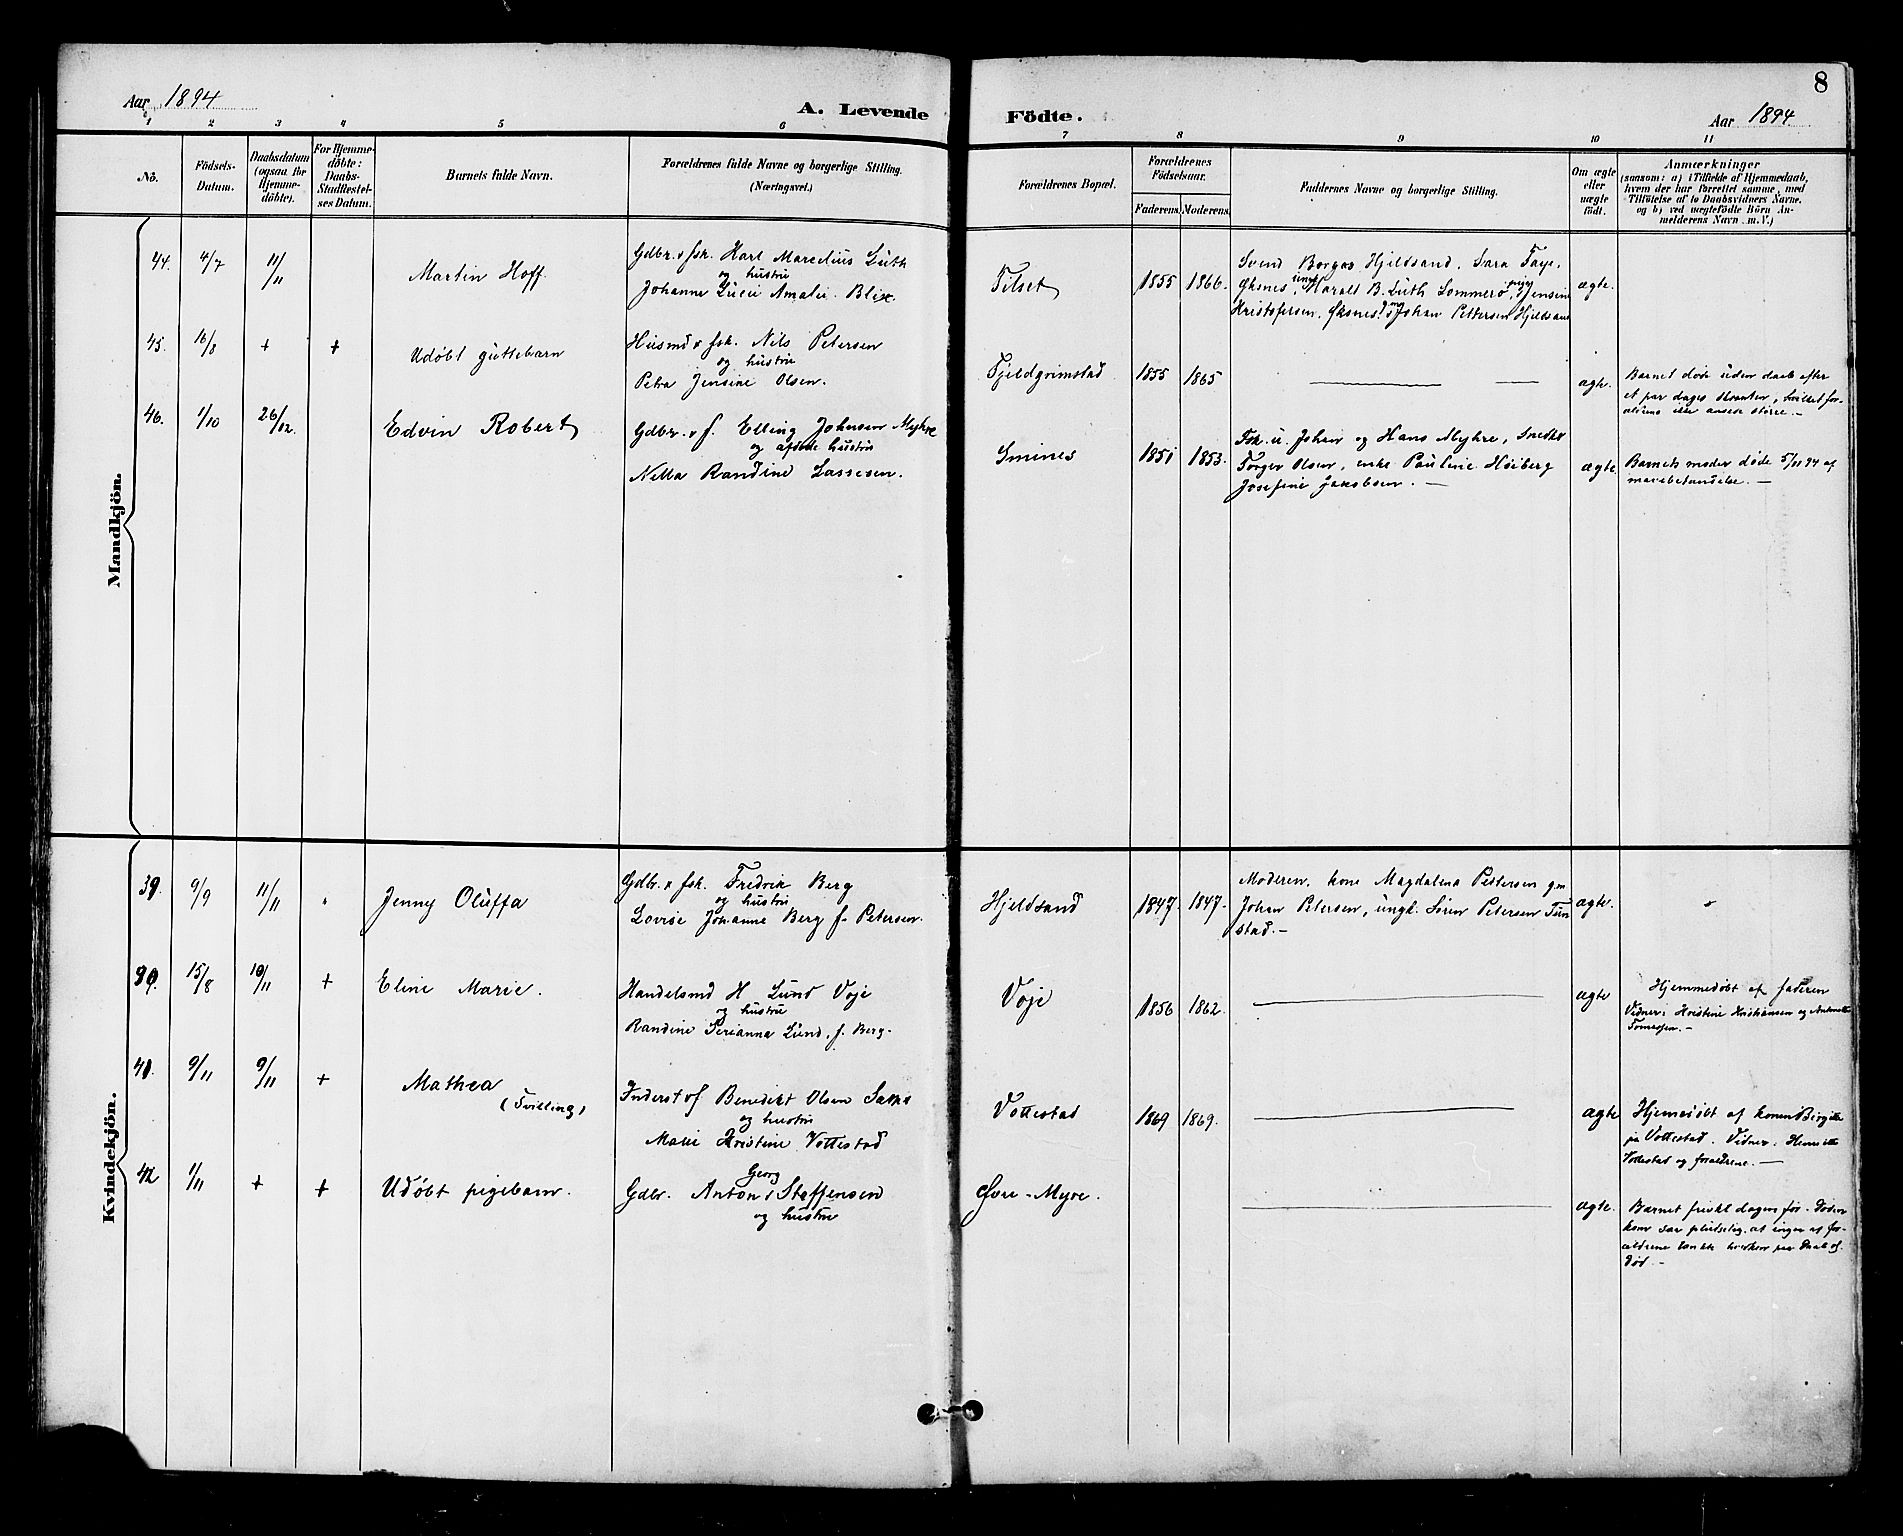 8
Aar 1894
A. Levende
Födte.
Aar 1894
1 2 3 4 5 6 7 8 9 10 11
No.
Födsels-
Datum.
Daabsdatum
(ogsaa for
Hjemme-
döbte).
For Hjemme-
döbte:
Daabs-
Stadfæstel-
ses Datum.
Barnets fulde Navn.
Forældrenes fulde Navne og borgerlige Stilling.
(Næringsvei.)
Forældrenes Bopæl.
Forældrenes
Födselsaar.
Faderens. Moderens.
Faddernes Navne og borgerlige Stilling.
Om ægte
eller
uægte
födt.
Anmærkninger
(saasom: a) i Tilfælde af Hjemmedaab,
hvem der har forrettet samme, med
Tilföielse af to Daabsvidners Navne.
og b) ved uægtefödte Börn An-
melderens Navn m. V.)
Mandkjön.
44. 4/7 11/11
Martin Hoff
Gdbr. & fsk. Karl Marcelius Lüth
og hustru
Johanne Lucie Amalie Blix.
Tilset
1855 1866.
Svend Borgos Hjeldsand, Sara Taye,
Øksnes, ungk. Harald B. Lüth Sommerø, pige Jensine
Kristofersen, Øksnes, Johan Pettersen Hjeldsand
ægte.
45. 16/8 + +
Udøbt guttebarn
Husmd & fsk. Nils Petersen
og hustru
Petra Jensine Olsen.
Fjeldgrimstad
1855 1865
ægte.
Barnet døde uden daab efter
et par dages
46. 1/10 26/12
Edvin Robert
Gdbr. & f. Elling Johnsen Myhre
og afdøde hustru
Nella Randine Lassesen.
Smines
1851 1853.
Fsk. u. Johan og Hans Myhre, Snedker
Torger Olsen, enke Pauline Høiberg
Josefine Jakobsen. —
ægte.
Barnets moder døde 5/11 94 af
mavebetændelse. —
Kvindekjön.
39. 9/9 11/11
Jenny Oluffa
Gdbr. & fsk. Fredrik Berg
og hustru
Lovise Johanne Berg f. Petersen.
Hjeldsand
1847. 1847.
Moderen, kone Magdalena Pettersen g.m
Johan Petersen, ungk. Søren Petersen Tün
stad. —
ægte.
15/8 10/11 +
Eline Marie.
Handelsmd H Lund Voje
og hustru
Randine Perianna Lund, f. Berg.
Voje
1856 1862.
ægte
Hjemmedøbt af faderen
Vidner: Kristine Kristiansen og
9/11 9/11 +
Mathea
(Tvilling)
Inderst & f Benedikt Olsen
og hustru
Marie Kristine Vottestad
Vottestad
1869 1869.
ægte
Hjemedøbt af konen Birgitte
på Vottestad. Vidner:
Vottestad og forældrene. —
42 1/11 + +
Udøbt pigebarn.
Georg
Gdbr. Anton Steffensen
og hustru
Øvre-Myre.
ægte.
Barnet friskt dagen før. Døden
kom saa pludselig, at ingen af for-
ældrene tænkte hverken paa daab el.
død. —